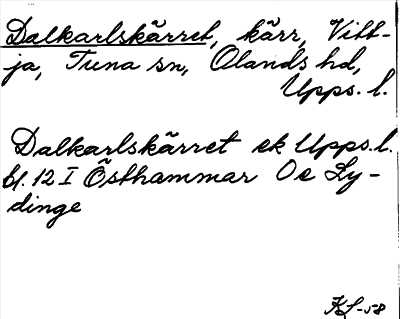 Dalkarlskärret, kärr, Vitt-
ja, Tuna sn, Olands hd,
Upps. l.
Dalkarlskärret ek Upps. l.
bl. 12 I Östhammar Oe Ly-
dinge
KL-58